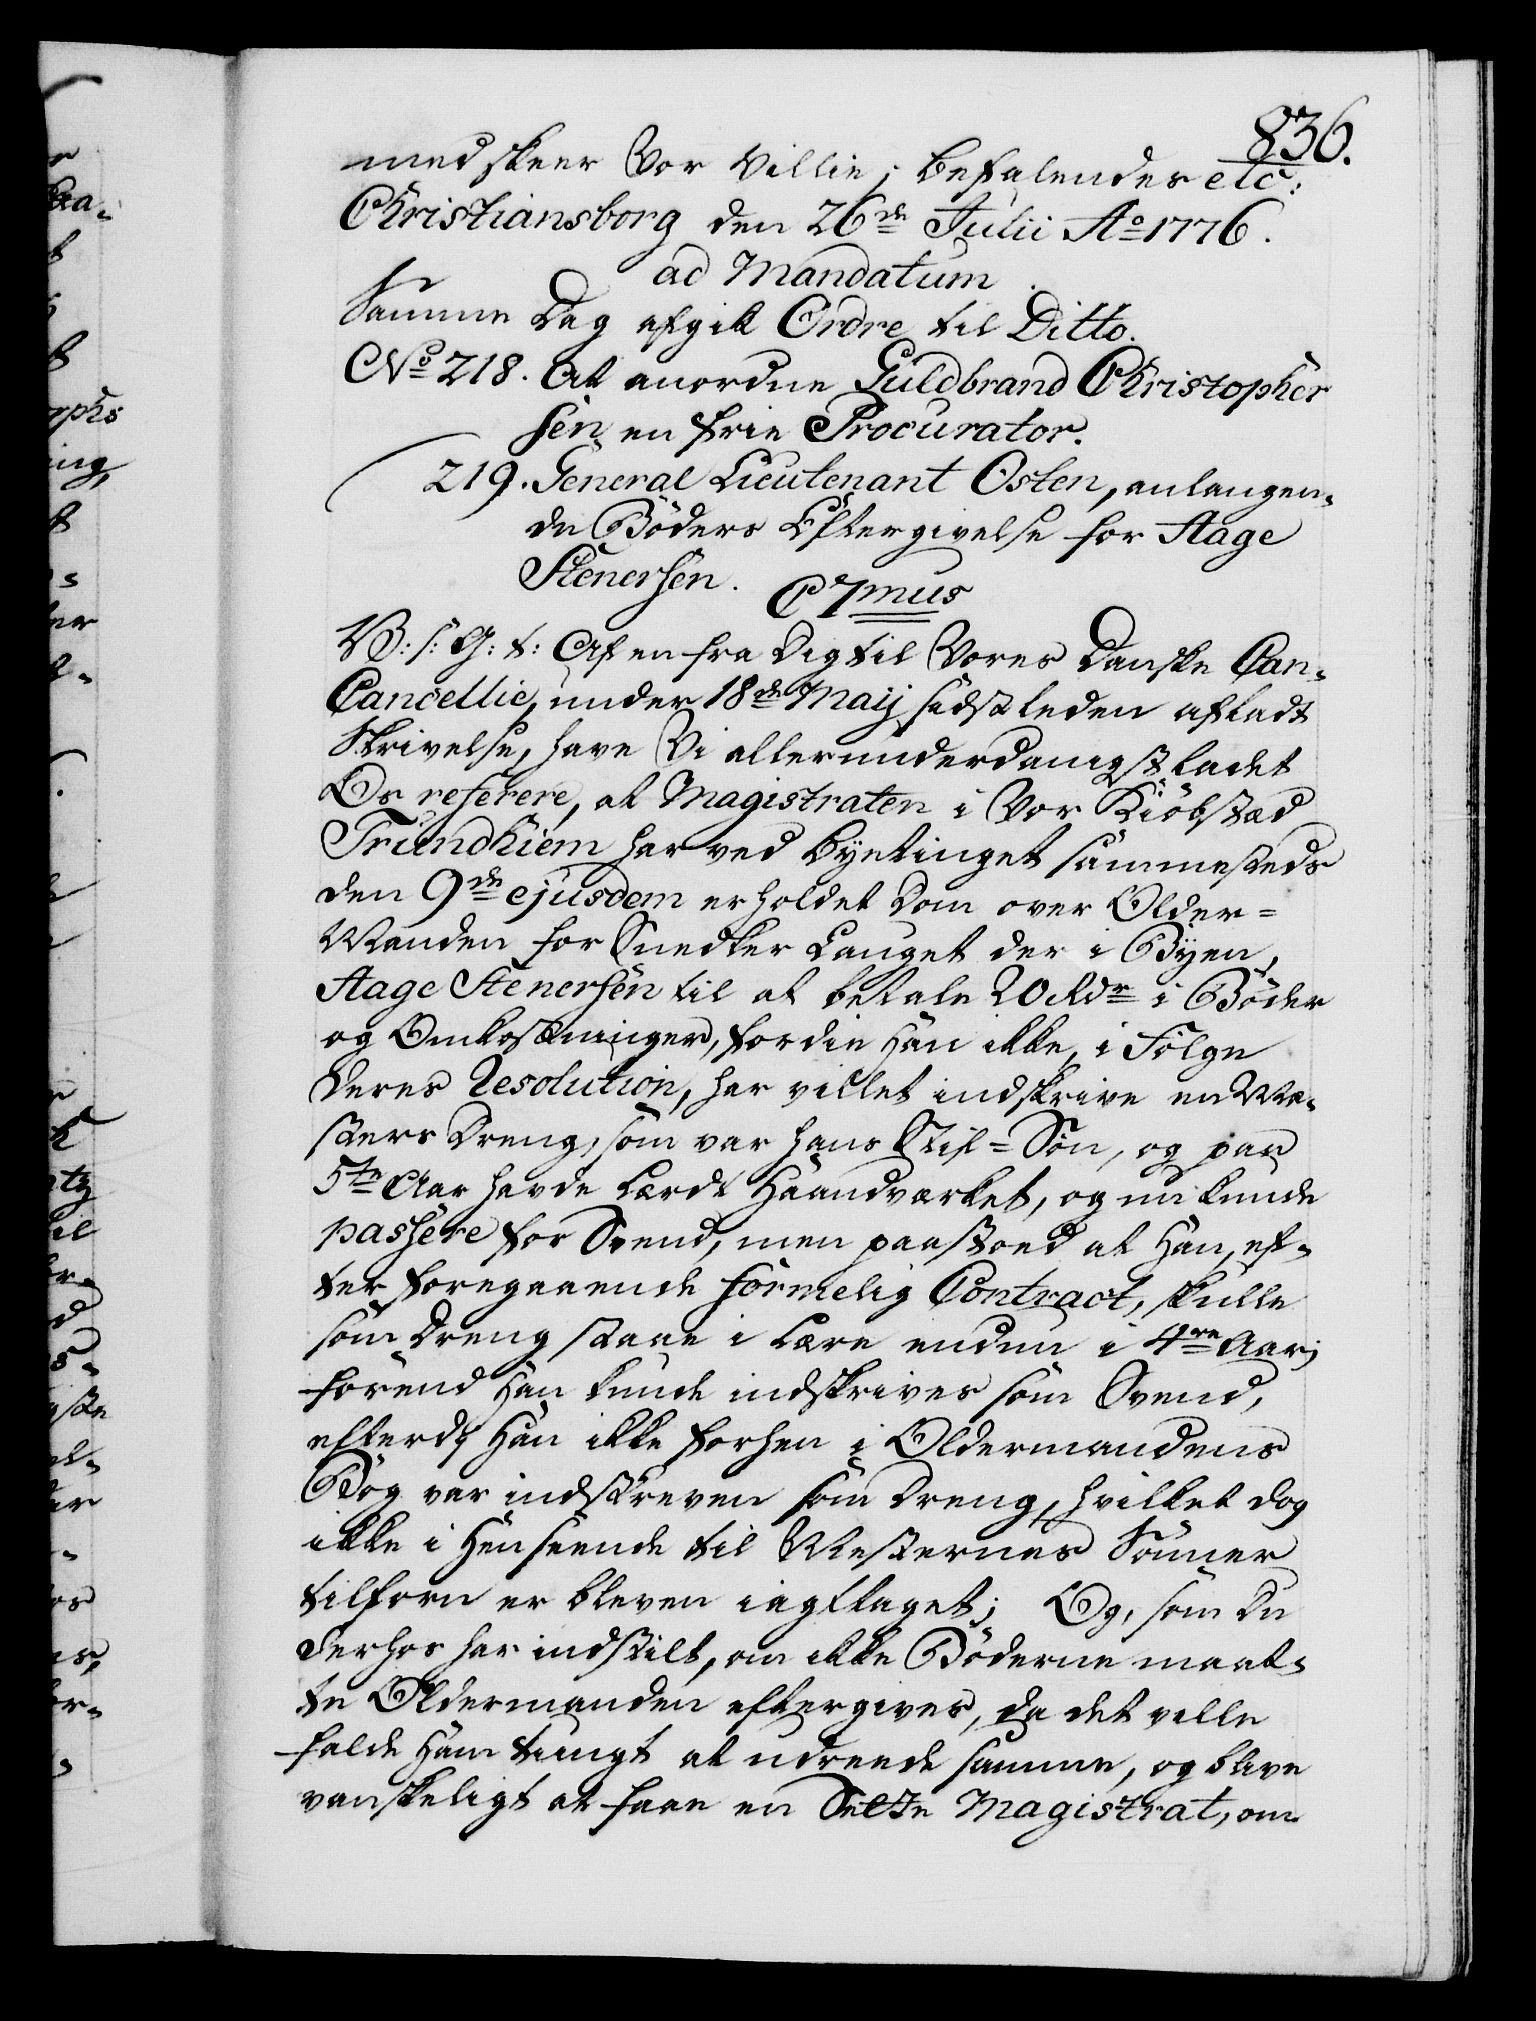 836.
med skeer Vor Villie; befalendes etc:
Christiansborg den 26de Julii Ao 1776.
ad Mandatum
Samme Dag afgik Ordre til Ditto.
No 218. At anordne Guldbrand Christopher
sen en frie Procurator.
219. General Lieutenant Osten, anlangen-
de Böders Eftergivelse for Aage
Stenersen. C 7mus
V: s: G: t: Af en fra Dig til Vores Danske Can-
Cancellie, under 18de Maij sidstleden afladt
Skrivelse, have Vi allerunderdanigst ladet
Os referere, at Magistraten i Vor Kiöbstæd
Trundhiem har ved Byetinget sammesteds
den 9de ejusdem erholdet Dom over Older-
Manden for Snedker Lauget der i Byen,
Aage Stenersen til at betale 20 Rdr i Böder
og Omkostninger, fordie Han ikke, i Fölge
deres Resolution, har villet indskrive en Me-
sters Dreng, som var hans Stif-Sön, og paa
5te Aar havde lærdt Haandværket, og nu kunde
passere for Svend, men paastoed at Han, ef-
ter foregaaende formelig Contract, skulle
som Dreng staae i Lære endnu i 4re Aar;
förend Han kunde indskrives som Svend,
efterdj Han ikke forhen i Oldermandens
Bog var indskreven som Dreng, hvilket dog
ikke i Henseende til Mesternes Sönner
tilforn er bleven iagttaget; Og, som Du
derhos har indstilt, om ikke Böderne maat-
te Oldermanden eftergives, da det ville
falde Ham tungt at udreede samme, og blive
vanskeligt at faae en Magistrat, om